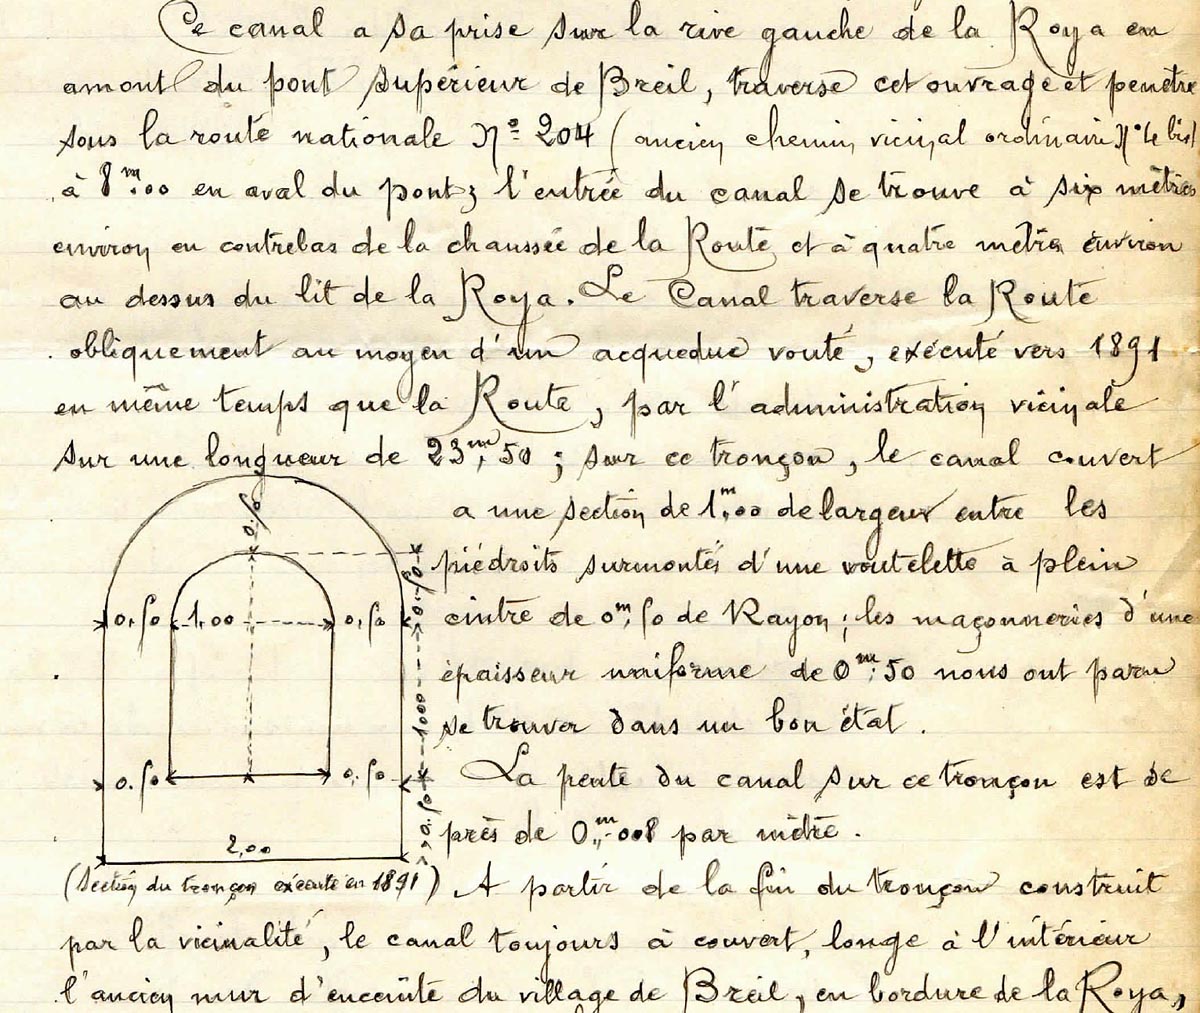 Ce canal a sa prise sur la rive gauche de la Roya en
amont du pont supérieur de Breil, traverse cet ouvrage et penètre
sous la route nationale N° 204 (ancien chemin vicinal ordinaire N° 4 bis)
à 8m,00 en aval du pont; l'entrée du canal se trouve à six mètres
environ en contrebas de la chaussée de la Route et à quatre mètres environ
au dessus du lit de la Roya. Le Canal traverse la Route
obliquement au moyen d'un acqueduc vouté, exécuté vers 1891
en même temps que la Route, par l'administration vicinale
sur une longueur de 23m,50 ; sur ce tronçon, le canal couvert
a une section de 1m,00 de largeur entre les
piédroits surmontés d'une voutelette à plein
cintre de 0m,50 de Rayon; les maçonneries d'une
épaisseur uniforme de 0m,50 nous ont paru
se trouver dans un bon état.
La pente du canal sur ce tronçon est de
près de 0m,008 par mètre.
0.50
0,50 1,00 0,50 0.50
1,000
0.50 0.50 0.50
2,00
(Section du tronçon exécuté en 1891) A partir de la fin du tronçon construit
par la vicinalité, le canal toujours à couvert, longe à l'intérieur
l'ancien mur d'enceinte du village de Breil, en bordure de la Roya,